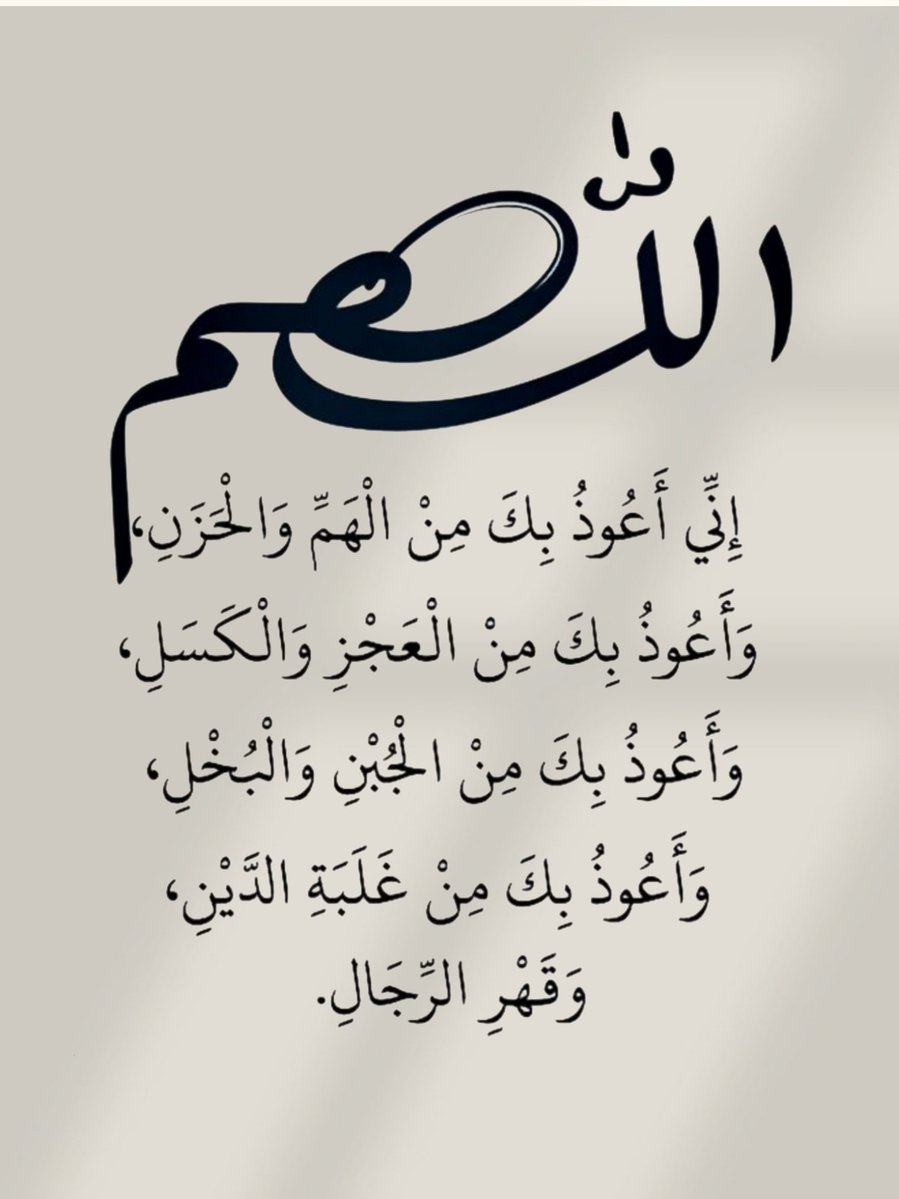 اللّٰهم
إِنِّي أَعُوذُ بِكَ مِنْ الْهَمِّ وَالْحَزَنِ،
وَأَعُوذُ بِكَ مِنْ الْعَجْزِ وَالْكَسَلِ،
وَأَعُوذُ بِكَ مِنْ الْجُبْنِ وَالْبُخْلِ،
وَأَعُوذُ بِكَ مِنْ غَلَبَةِ الدَّيْنِ،
وَقَهْرِ الرِّجَالِ.